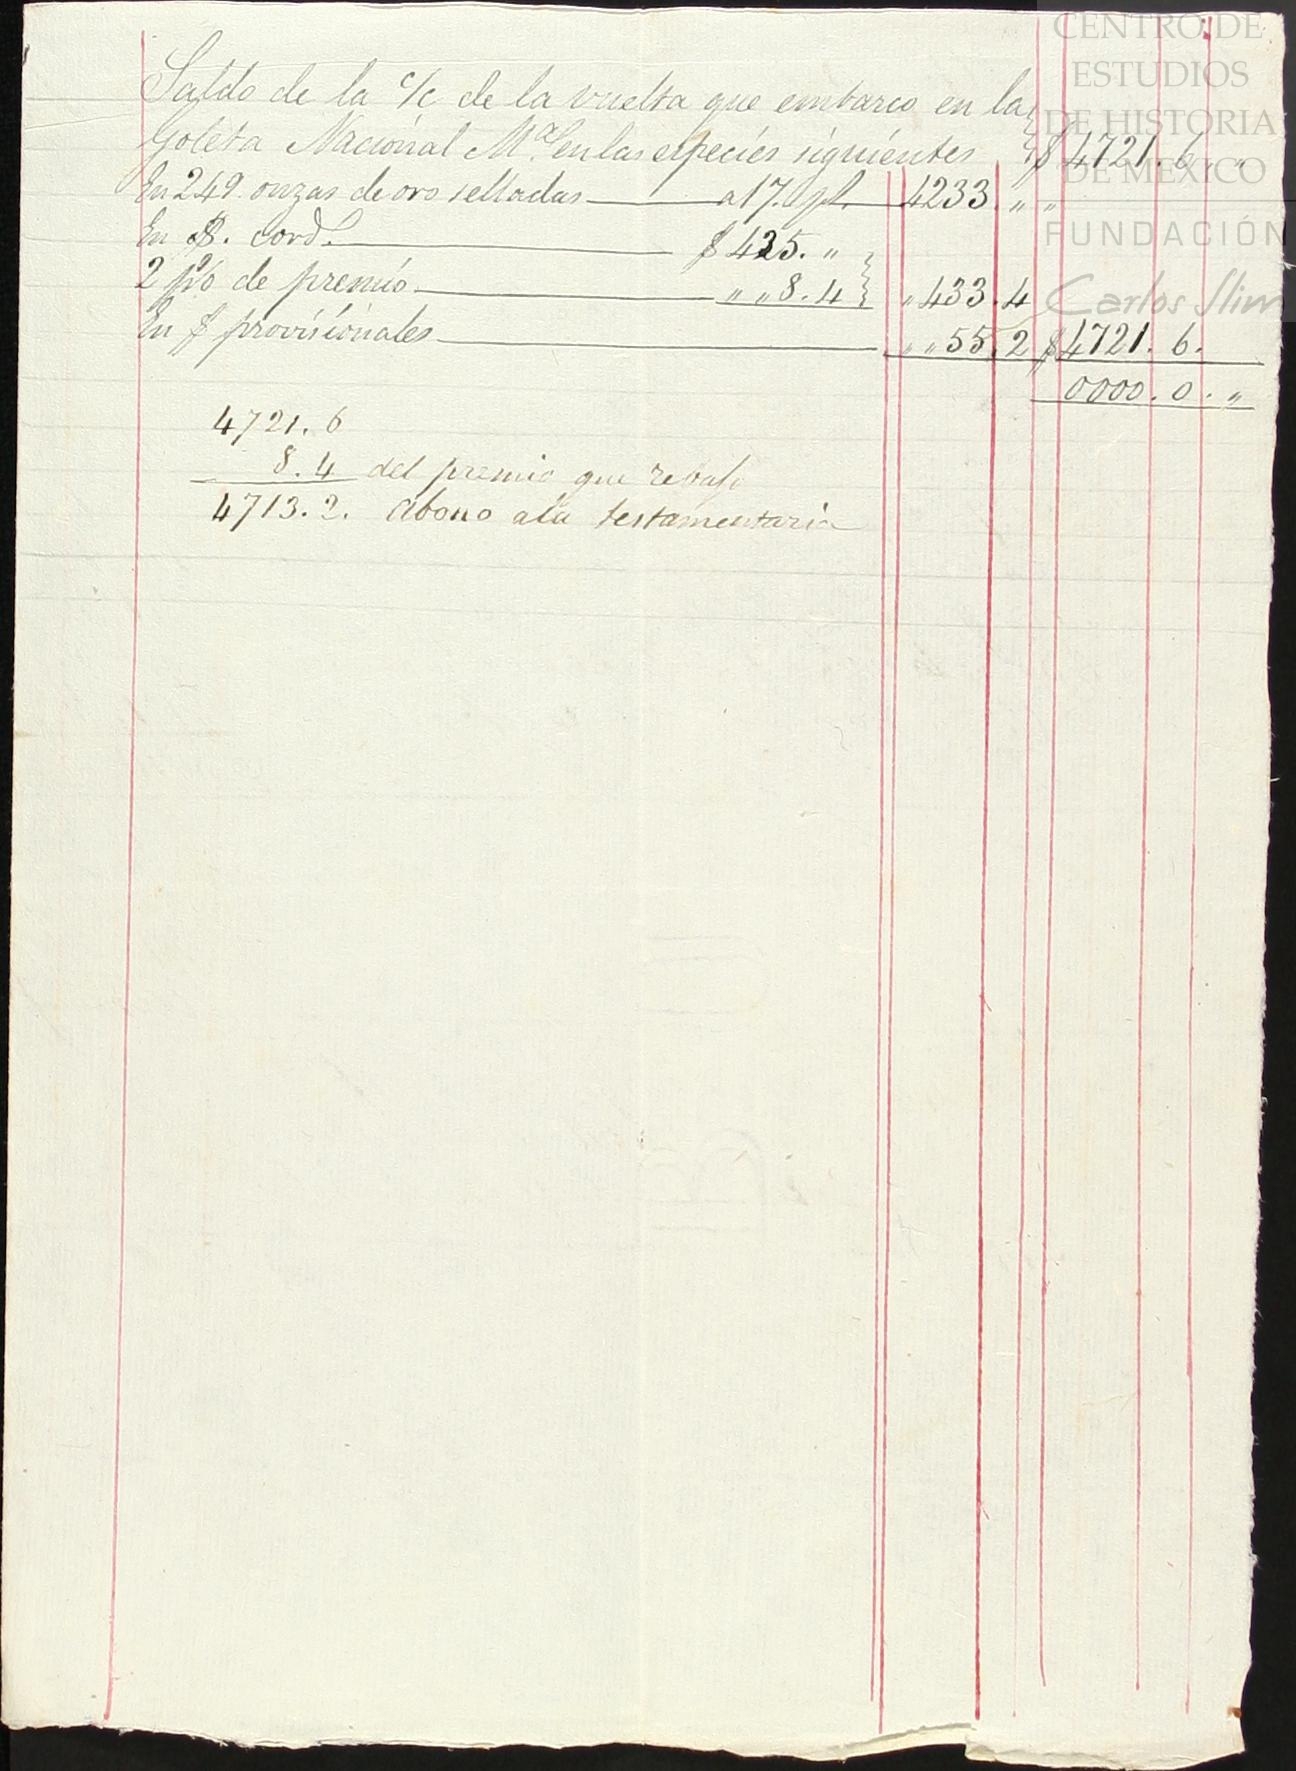 CENTRO DE
ESTUDIOS
DE HISTORIA
DE MEXICO
FUNDACIÓN
Carlos Slim
Saldo de la c/c de la vuelta que embarco en la
Goleta Nacional Mª en las especies siguientes $ 4721. 6. „
En 249. onzas de oro selladas a 17. 4233. „ „
En $. cord.s $ 425. „
2 p% de premio „ „ 8. 4 „ 433. 4
En $ provisionales „ „ 55. 2 $ 4721. 6.
0000. 0. „
4721. 6
8. 4 del premio que rebajo
4713. 2. Abono ala testamentaria